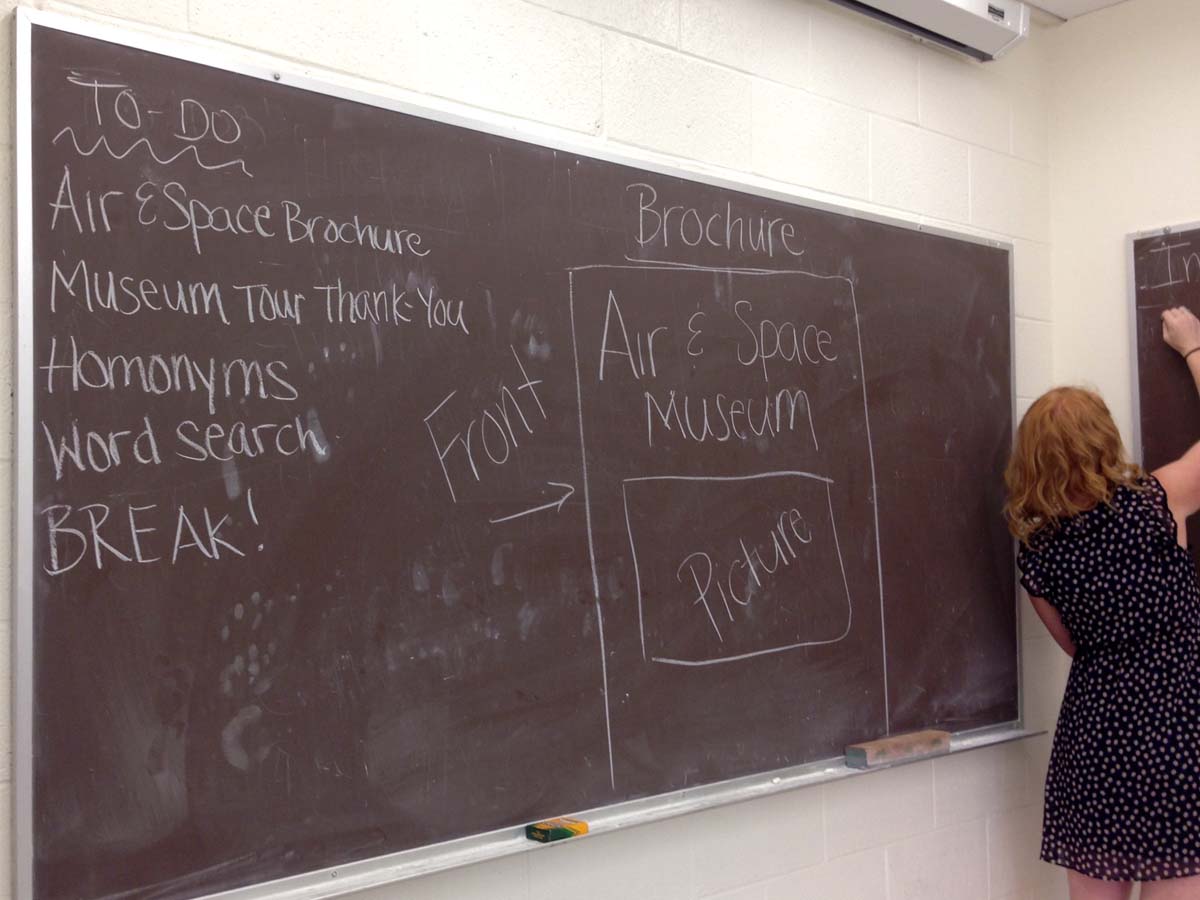 TO-DO
Air & Space Brochure
Museum Tour Thank-You
Homonyms
Word Search
BREAK!
Front
Brochure
Air & Space
Museum
Picture